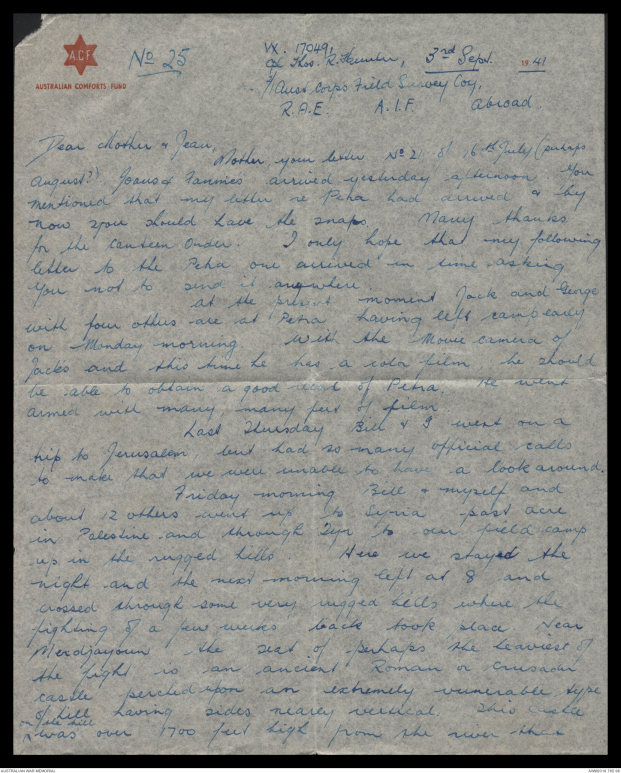 A.C.F
AUSTRALIAN COMFORTS FUND
No 25
VX. 17049,
Thos. R. 3rd Sept. 1941
Aust Corps Field Survey Coy,
R.A.E. A.I.F. Abroad.
Dear Mother & Jean,
Mother your letter No 21 of 16th July (perhaps
August??) Joans & Fannies arrived yesterday afternoon. You
mentioned that my letter re Petra had arrived & by
now you should have the snaps. Many thanks
for the Canteen Order. I only hope that my following
letter to the Petra one arrived in time asking
you not to send it anywhere.
At the present moment Jack and George
with four others are at Petra having left camp early
on Monday morning. With the Movie camera of
Jacks and this time he has a color film he should
be able to obtain a good record of Petra. He went
armed with many, many feet of film
Last Thursday Bill & I went on a
trip to Jerusalem but had so many official calls
to make that we were unable to have a look around.
Friday morning Bill & myself and
about 12 others went up to Syria past acre
in Palestine and through Tyr to our field camp
up in the rugged hills. Here we stayed the
night and the next morning left at 8 and
crossed through some very rugged hills where the
fighting of a few weeks back took place. Near
Merdjayoun the seat of perhaps the heaviest of
the fight is an ancient Roman or Crusader
castle perched upon an extremely vunerable type
of hill having sides nearly vertical. This castle
on the hill
was over 1700 feet high from the river that
AUSTRALIAN WAR MEMORIAL